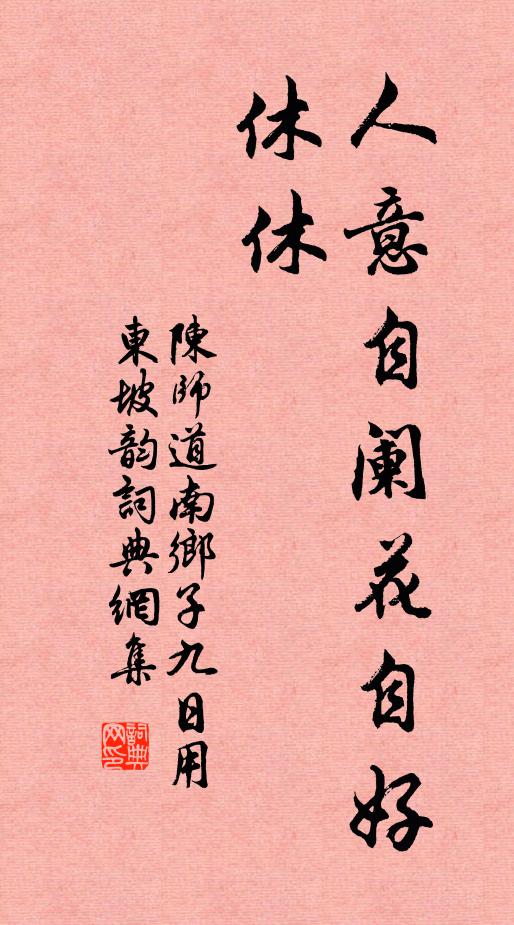 人意自阑花自好
休休
陳師道南鄉子九日用
東坡韵詞典網集
詞典
网印